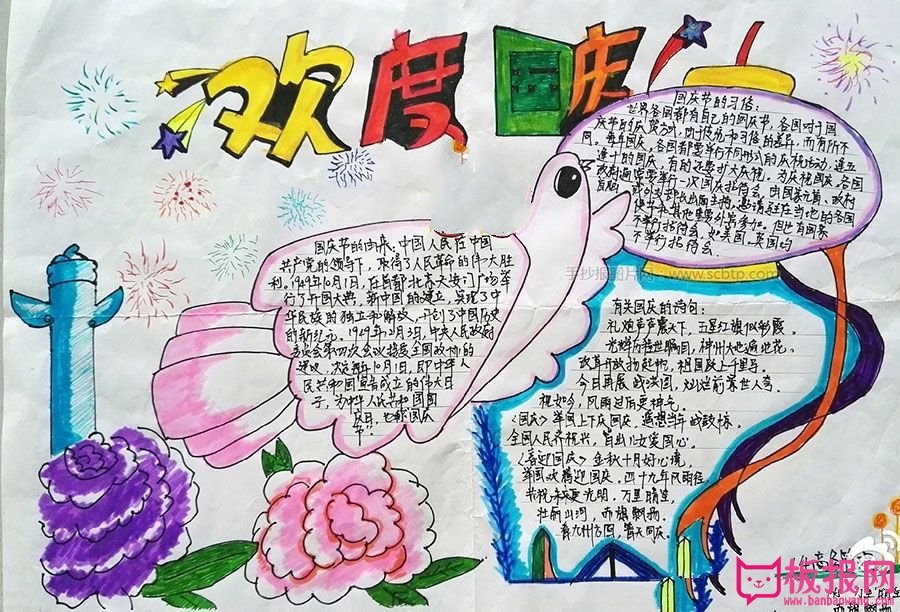 欢度国庆
国庆节的习俗:
世界各国都有自己的国庆节,各国对于国
庆节的庆贺方式,由于
习俗的差异,而有所不
同。每年国庆,各国都要举行不同形式的庆祝活动,逢五
逢十的国庆,有的还要扩大庆祝。为庆祝国庆,各国
政府通常要举行一次国庆招待会,由国家元首、政府
首脑
或外交部长出面主持,邀请驻在当地的各国
使节和其他重要外宾参加。但也有国家
不举行招待会,如美国、英国均
不举行招待会。
国庆节的由来:中国人民在中国
共产党的领导下,取得了人民革命的伟大胜
利。1949年10月1日,在首都北京天安门广场举
行了开国大典,新中国的建立,实现了中
华民族的独立和解放,开创了中国历史
的新纪元。1949年12月3日,中央人民政府
委员会第四次会议接受全国政协的
建议,决定每年10月1日,即中华人
民共和国宣告成立的伟大日
子,为中华人民共和国国
庆日,也称国庆
节!
手抄报图片网:www.scbtp.com
有关国庆的诗句:
礼炮声声震天下,五星红旗似彩霞。
光辉历程世瞩目,神州大地遍地花。
改革开放扬起帆,祖国跃上千里马。
今日再展
灿烂前景世人夸。
祝如今,风雨过后更神气。
《国庆》举国上下庆国庆,遥想当年战鼓惊。
全国人民齐祝兴,
《喜迎国庆》金秋十月好心境,
举国欢腾迎国庆。四十九年风雨径,
光明,万里晴空,
壮丽山河,
飘扬。
看九州方圆,普天同庆。
板报网
www.banbaowang.com